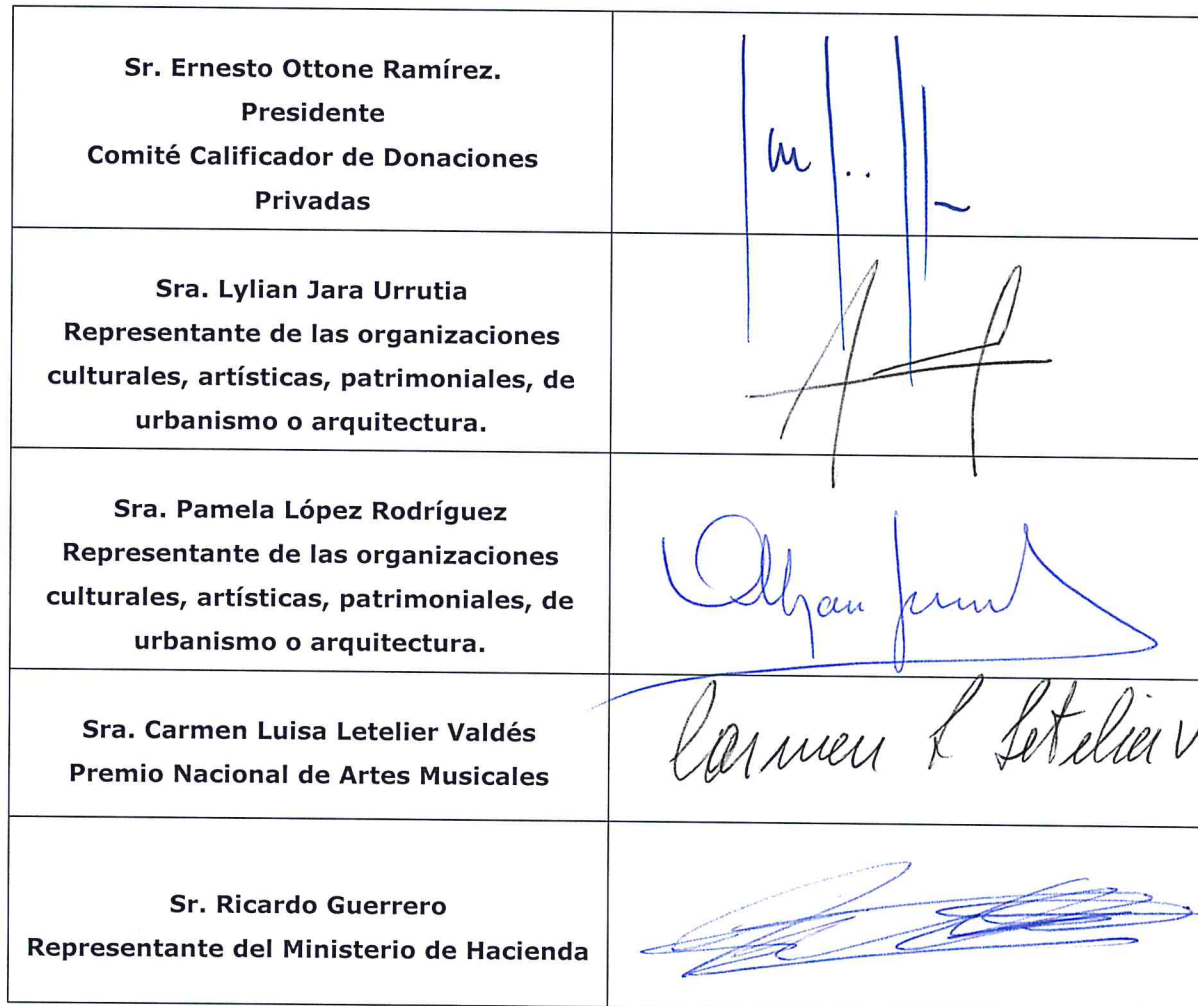 Sr. Ernesto Ottone Ramírez.
Presidente
Comité Calificador de Donaciones
Privadas
Sra. Lylian Jara Urrutia
Representante de las organizaciones
culturales, artísticas, patrimoniales, de
urbanismo o arquitectura.
Sra. Pamela López Rodríguez
Representante de las organizaciones
culturales, artísticas, patrimoniales, de
urbanismo o arquitectura.
Sra. Carmen Luisa Letelier Valdés
Premio Nacional de Artes Musicales
Carmen L Letelier V
Sr. Ricardo Guerrero
Representante del Ministerio de Hacienda